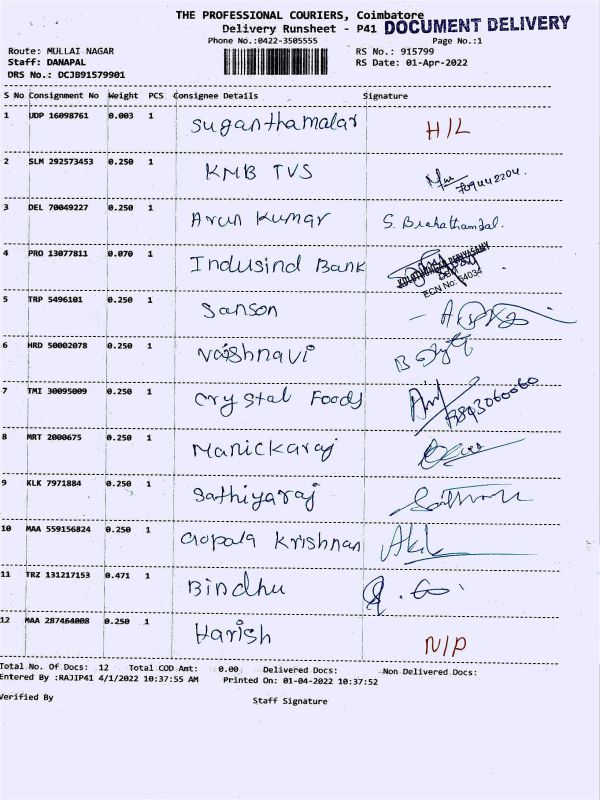 THE PROFESSIONAL COURIERS, Coimbatore
Delivery Runsheet - P41 DOCUMENT DELIVERY
Phone No.:0422-3505555 Page No.:1
Route: MULLAI NAGAR RS No.: 915799
Staff: DANAPAL RS Date: 01-Apr-2022
DRS No.: DCJB91579901
S No Consignment No Weight PCS Consignee Details Signature
1 UDP 16098761 0.003 1 Suganthamalar H/L
2 SLM 292573453 0.250 1 KMB TVS
3 DEL 70049227 0.250 1 Arun Kumar
4 PRO 13077811 0.070 1 Indusind Bank
ECN No: 54034
5 TRP 5496101 0.250 1 Sanson
6 HRD 50002078 0.250 1 Vaishnavi
7 TMI 30095009 0.250 1 Crystal Foods
8 MRT 2000675 0.250 1 Manickaraj
9 KLK 7971884 0.250 1 Sathiyaraj
10 MAA 559156824 0.250 1 Gopala Krishnan
11 TRZ 131217153 0.471 1 Bindhu
12 MAA 287464008 0.250 1 Harish N/P
Total No. Of Docs: 12 Total COD Amt: 0.00 Delivered Docs: Non Delivered Docs:
Entered By :RAJIP41 4/1/2022 10:37:55 AM Printed On: 01-04-2022 10:37:52
Verified By Staff Signature